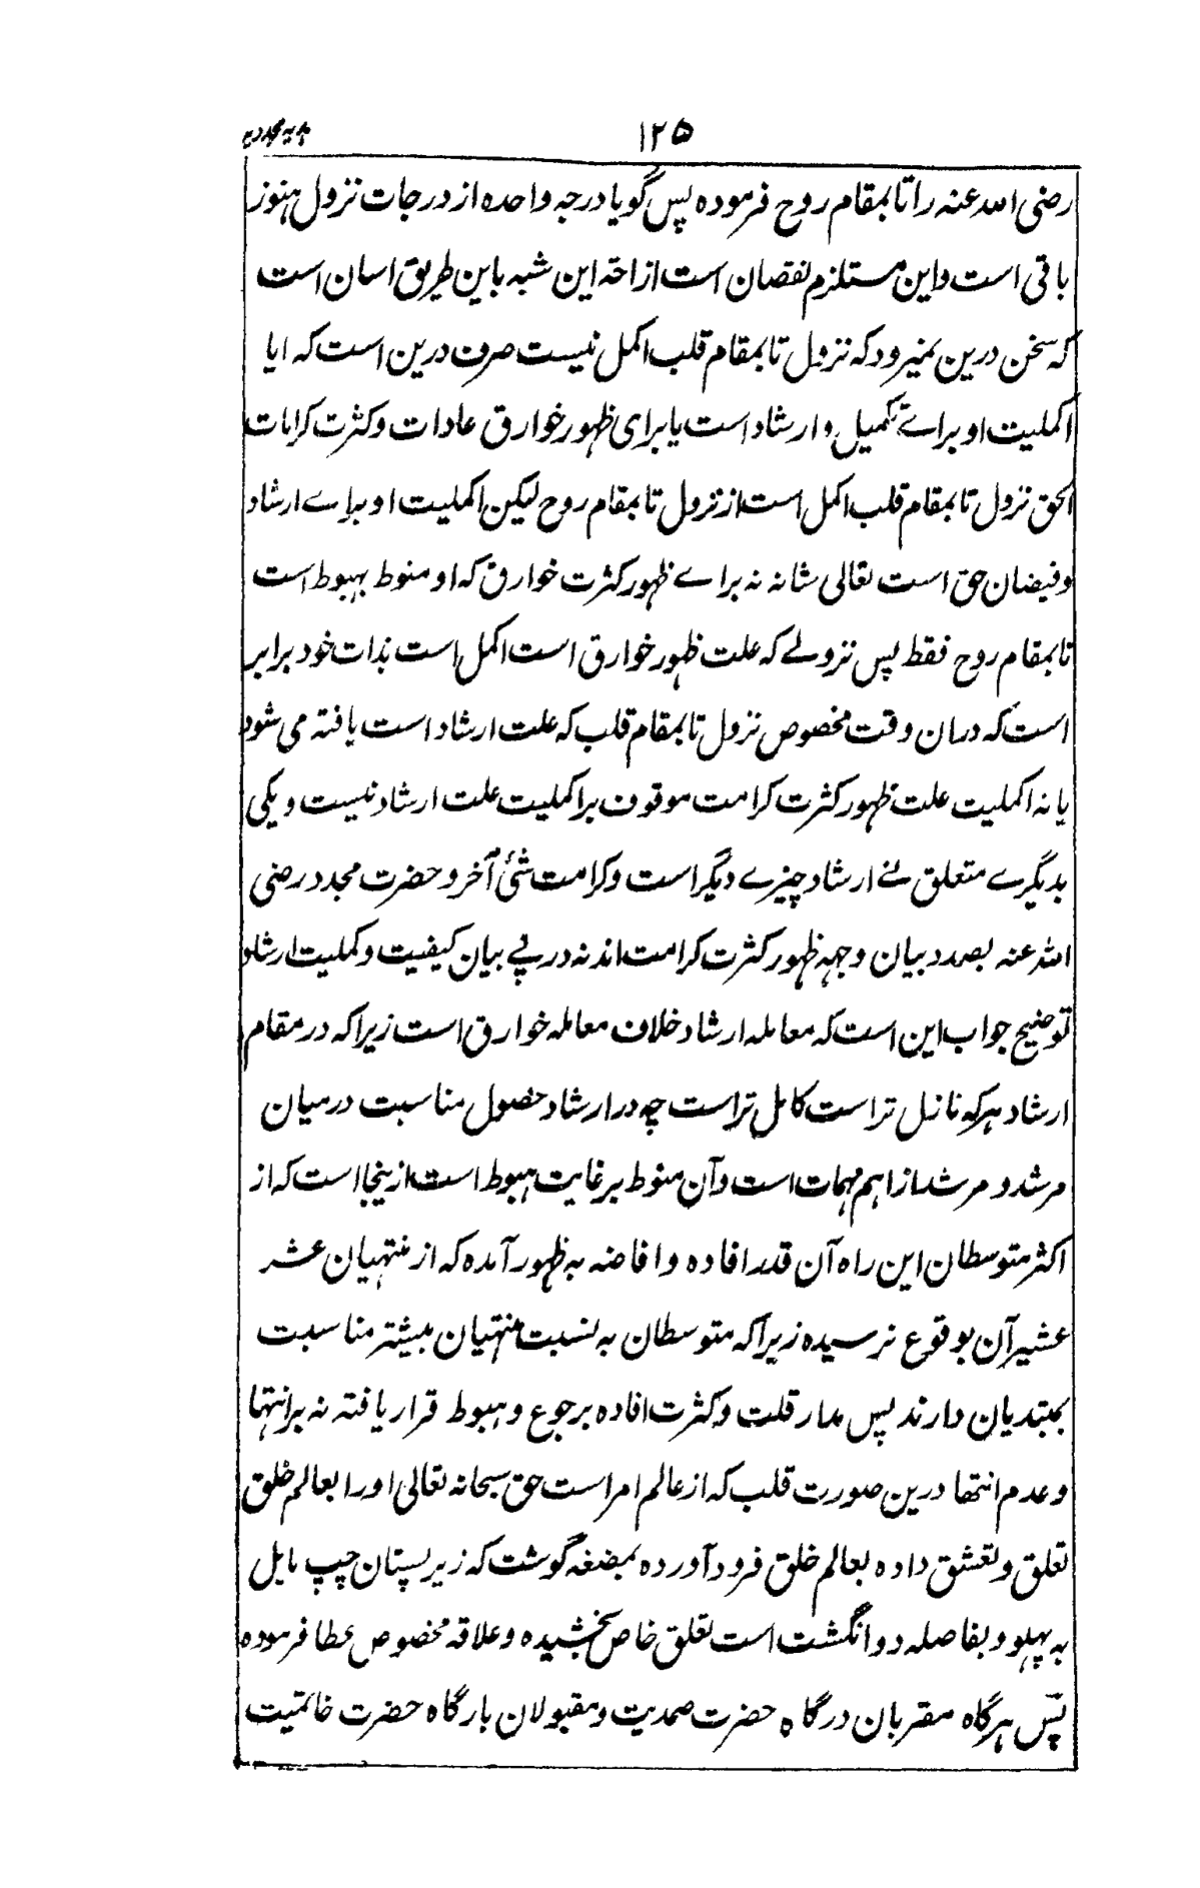 ۱۲۵
رضی الله عنه را تا بمقام روح فرموده پس گویا درجه واحده از درجات نزول هنوز
باقی است و این مستلزم نقصان است ازاحۀ این شبه باین طریق اسان است
که سخن درین نمیرود که نزول تا بمقام قلب اکمل نیست صرف درین است که ایا
اکملیت او براے تکمیل و ارشاد است یا برای ظهور خوارق عادات و کثرت کرامات
الحق نزول تا بمقام قلب اکمل است از نزول تا بمقام روح لیکن اکملیت او براے ارشاد
و فیضان حق است تعالی شانه نه براے ظهور کثرت خوارق که او منوط بهبوط است
تا بمقام روح فقط پس نزولے که علت ظهور خوارق است اکمل است بذات خود برابر
است که دران وقت مخصوص نزول تا بمقام قلب که علت ارشاد است یافته می شود
یا نه اکملیت علت ظهور کثرت کرامت موقوف بر اکملیت علت ارشاد نیست و یکی
بدیگرے متعلق نے ارشاد چیزے دیگر است و کرامت شئ آخر و حضرت مجدد رضی
الله عنه بصدد بیان وجهه ظهور کثرت کرامت اند نه درپے بیان کیفیت و کملیت ارشاد
توضیح جواب این است که معامله ارشاد خلاف معامله خوارق است زیرا که در مقام
ارشاد هر که نازل تر است کامل تر است چه در ارشاد حصول مناسبت درمیان
مرشد و مرشد از اهم مهمات است و آن منوط بر غایت هبوط است ازینجا است که از
اکثر متوسطان این راه آن قدر افاده و افاضه به ظهور آمده که از منتهیان عشر
عشیر آن بوقوع نرسیده زیرا که متوسطان به نسبت منتهیان بیشتر مناسبت
بمبتدیان دارند پس مدار قلت و کثرت افاده برجوع و هبوط قرار یافته نه بر انتها
و عدم انتها درین صورت قلب که از عالم امر است حق سبحانه تعالی او را بعالم خلق
تعلق و تعشق داده بعالم خلق فرود آورده بمضغه گوشت که زیر پستان چپ مایل
به پهلو و بفاصله دو انگشت است تعلق خاص بخشیده و علاقه مخصوص عطا فرموده
پس هرگاه مقربان درگاه حضرت صمدیت و مقبولان بارگاه حضرت خاتمیت